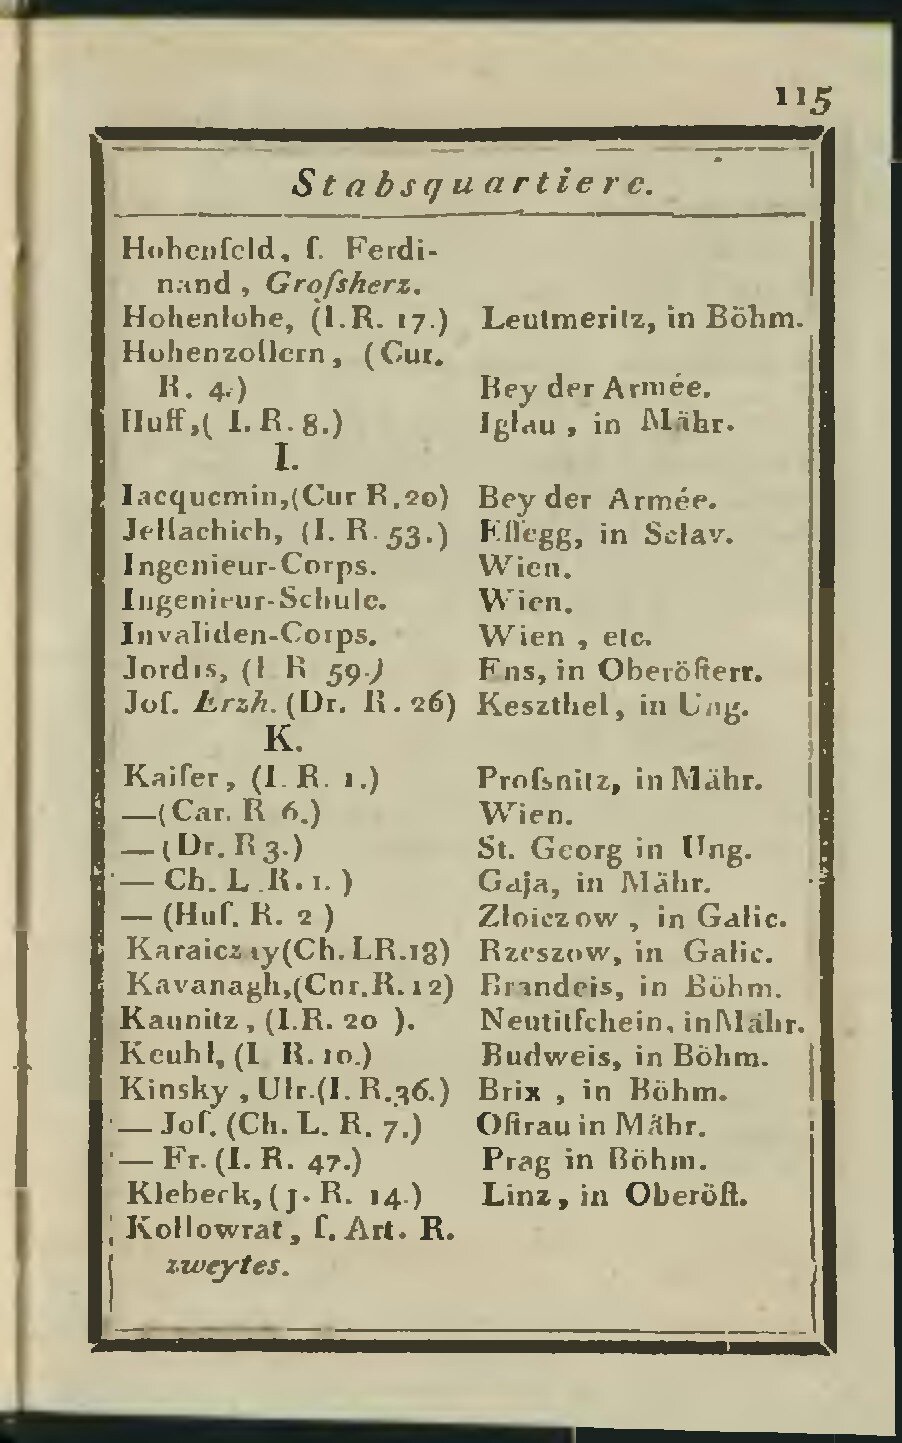 115
Stabsquartiere.
Hohenfeld, ſ. Ferdi-
nand, Groſsherz.
Hohenlohe, (I.R. 17.) Leutmeritz, in Böhm.
Hohenzollern, (Cur.
R. 4.) Bey der Armée.
Huff,( I. R. 8.) Iglau, in Mähr.
I.
Iacquemin,(Cur R.20) Bey der Armée.
Jellachich, (I. R. 53.) Eſſegg, in Sclav.
Ingenieur-Corps. Wien.
Ingenieur-Schule. Wien.
Invaliden-Corps. Wien, etc.
Jordis, (I R 59.) Ens, in Oberöſterr.
Joſ. Erzh. (Dr. R. 26) Keszthel, in Ung.
K.
Kaiſer, (I. R. 1.) Proſsnitz, in Mähr.
—(Car. R 6.) Wien.
—(Dr. R 3.) St. Georg in Ung.
— Ch. L. R. 1. ) Gaja, in Mähr.
— (Huſ. R. 2 ) Zloiczow, in Galic.
Karaiczay(Ch. LR.18) Rzeszow, in Galic.
Kavanagh,(Cur. R. 12) Brandeis, in Böhm.
Kaunitz, (I.R. 20 ). Neutitſchein, in Mähr.
Keuhl, (I R. 10.) Budweis, in Böhm.
Kinsky, Ulr.(I. R. 36.) Brix, in Böhm.
— Joſ. (Ch. L. R. 7.) Oſtrau in Mähr.
— Fr. (I. R. 47.) Prag in Böhm.
Klebeck, (J. R. 14.) Linz, in Oberöſt.
Kollowrat, ſ. Art. R.
zweytes.